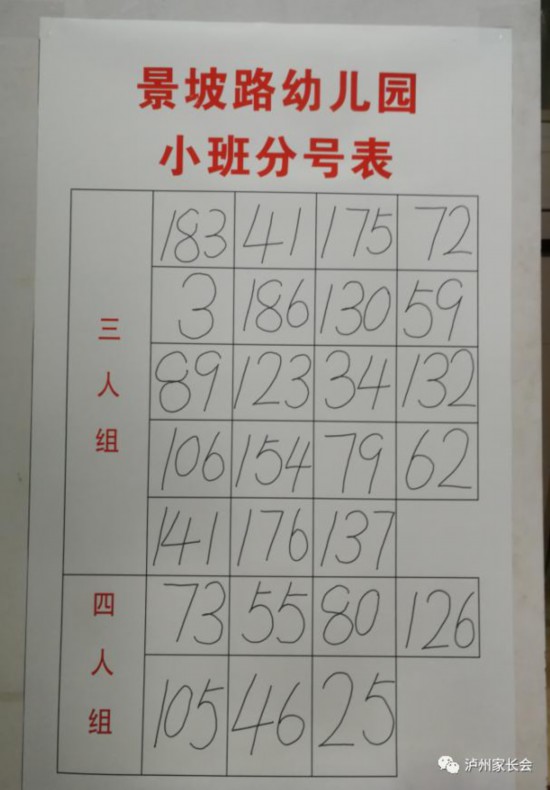 景坡路幼儿园
小班分号表
三人组
183 41 175 72
3 186 130 59
89 123 34 132
106 154 79 62
141 176 137
四人组
73 55 80 126
105 46 25
泸州家长会